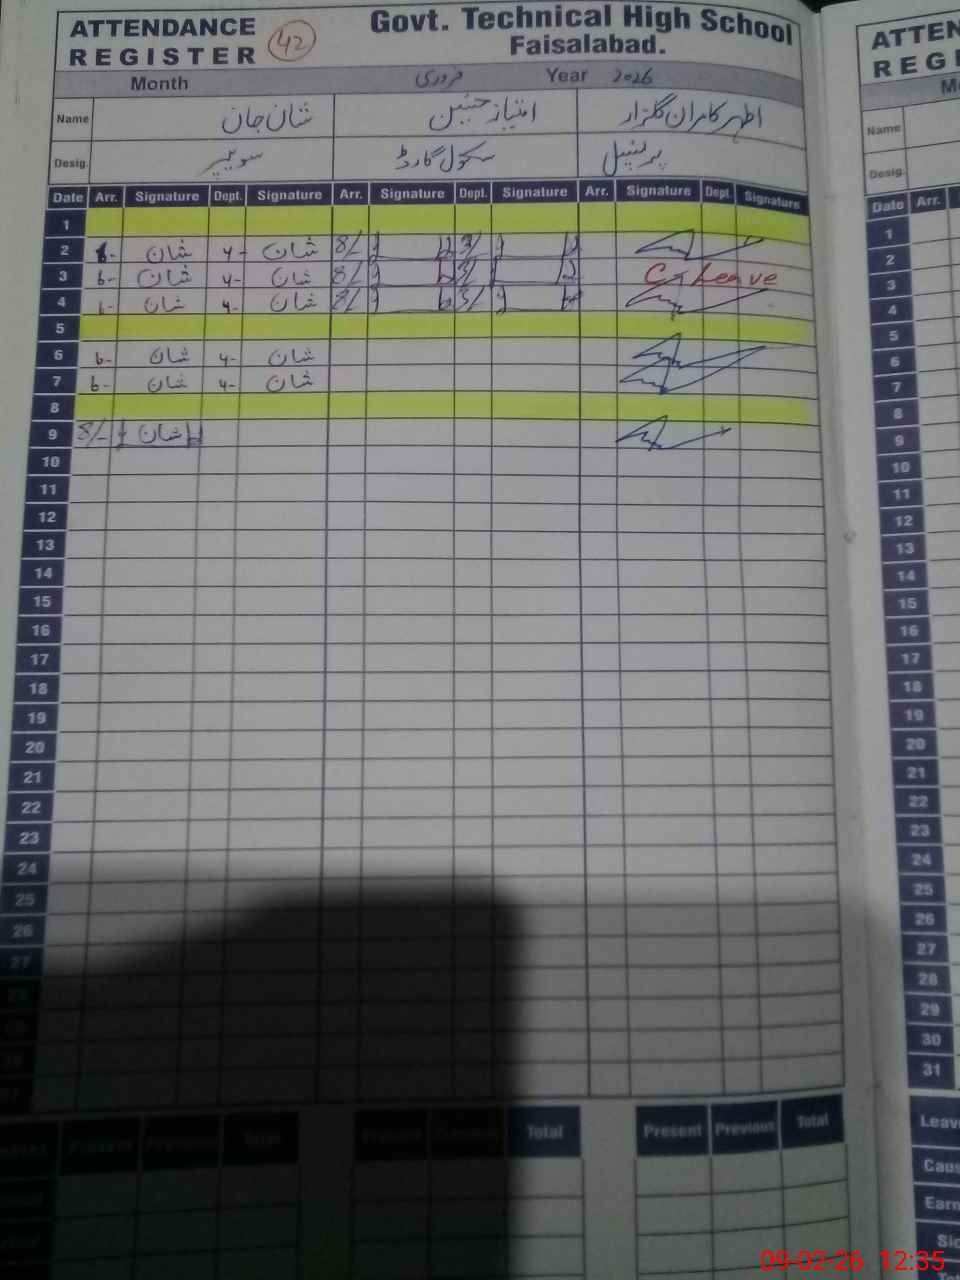 ATTENDANCE REGISTER 42 Govt. Technical High School Faisalabad.
Month فروری Year 2026
Name شان جان امتیاز حسین اطہر کامران گلزار
Desig. سویپر سکول گارڈ پرنسپل
Date Arr. Signature Dept. Signature Arr. Signature Dept. Signature Arr. Signature Dept. Signature
1
2 شان شان 8/
3 شان شان 8/ C-Leave
4 شان شان 8/
5
6 شان شان
7 شان شان
8
9 8/- شان
10
11
12
13
14
15
16
17
18
19
20
21
22
23
24
25
26
27
Present Total Present Total Present Previous Total
ATTEN
REGI
Name
Desig.
Date Arr.
1
2
3
4
5
6
7
8
9
10
11
12
13
14
15
16
17
18
19
20
21
22
23
24
25
26
27
28
29
30
31
Leav
Cau
Earn
Sic
09-02-26 12:35